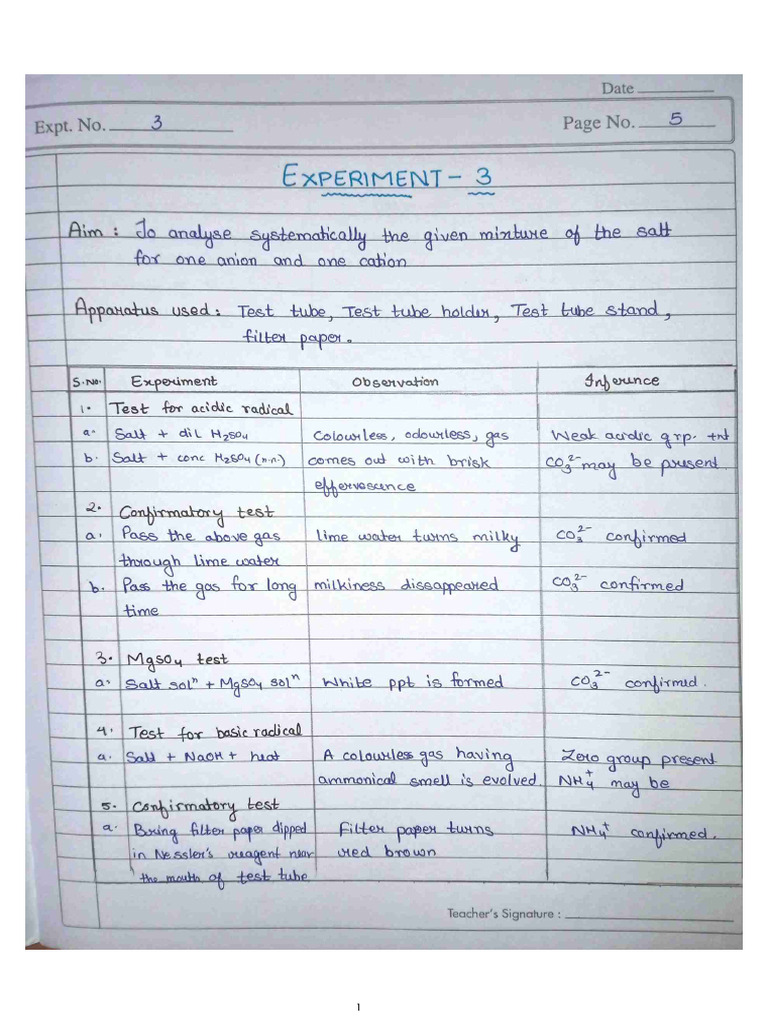 Date
Expt. No. 3
Page No. 5
EXPERIMENT - 3
Aim : To analyse systematically the given mixture of the salt
for one anion and one cation
Apparatus used : Test tube, Test tube holder, Test tube stand,
filter paper.
S.No. Experiment Observation Inference
1. Test for acidic radical
a. Salt + dil H2SO4 Colourless, odourless, gas Weak acidic grp. +nt
b. Salt + conc H2SO4 (n.n.) comes out with brisk CO3^2- may be present
effervescence
2. Confirmatory test
a. Pass the above gas lime water turns milky CO3^2- confirmed
through lime water
b. Pass the gas for long milkiness dissappeared CO3^2- confirmed
time
3. MgSO4 test
a. Salt sol^n + MgSO4 sol^n White ppt is formed CO3^2- confirmed.
4. Test for basic radical
a. Salt + NaOH + heat A colourless gas having Zero group present
ammonical smell is evolved. NH4^+ may be
5. Confirmatory test
a. Bring filter paper dipped Filter paper turns NH4^+ confirmed.
in Nessler's reagent near red brown
the mouth of test tube
Teacher's Signature :
1